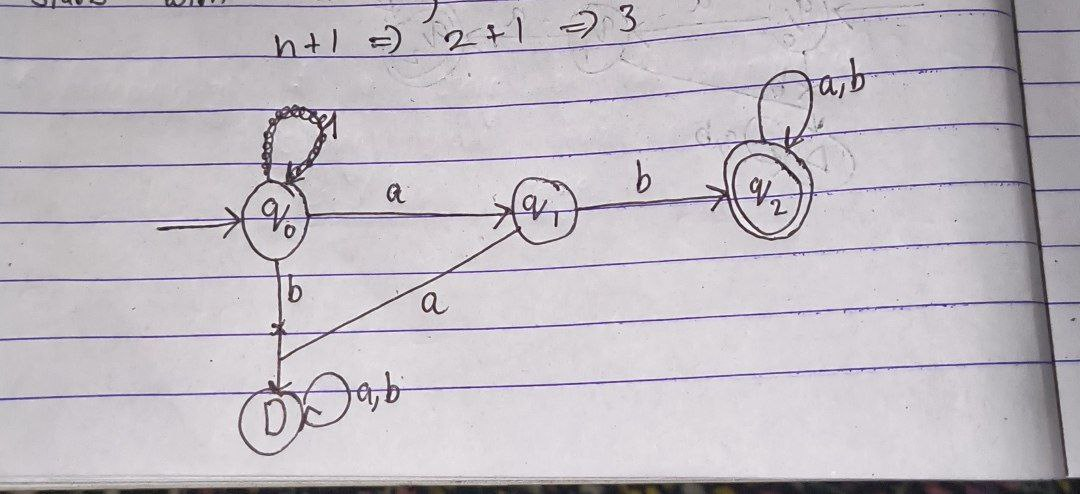 n+1 => 2+1 => 3
a,b
q0 a q1 b q2
b
a
D a,b